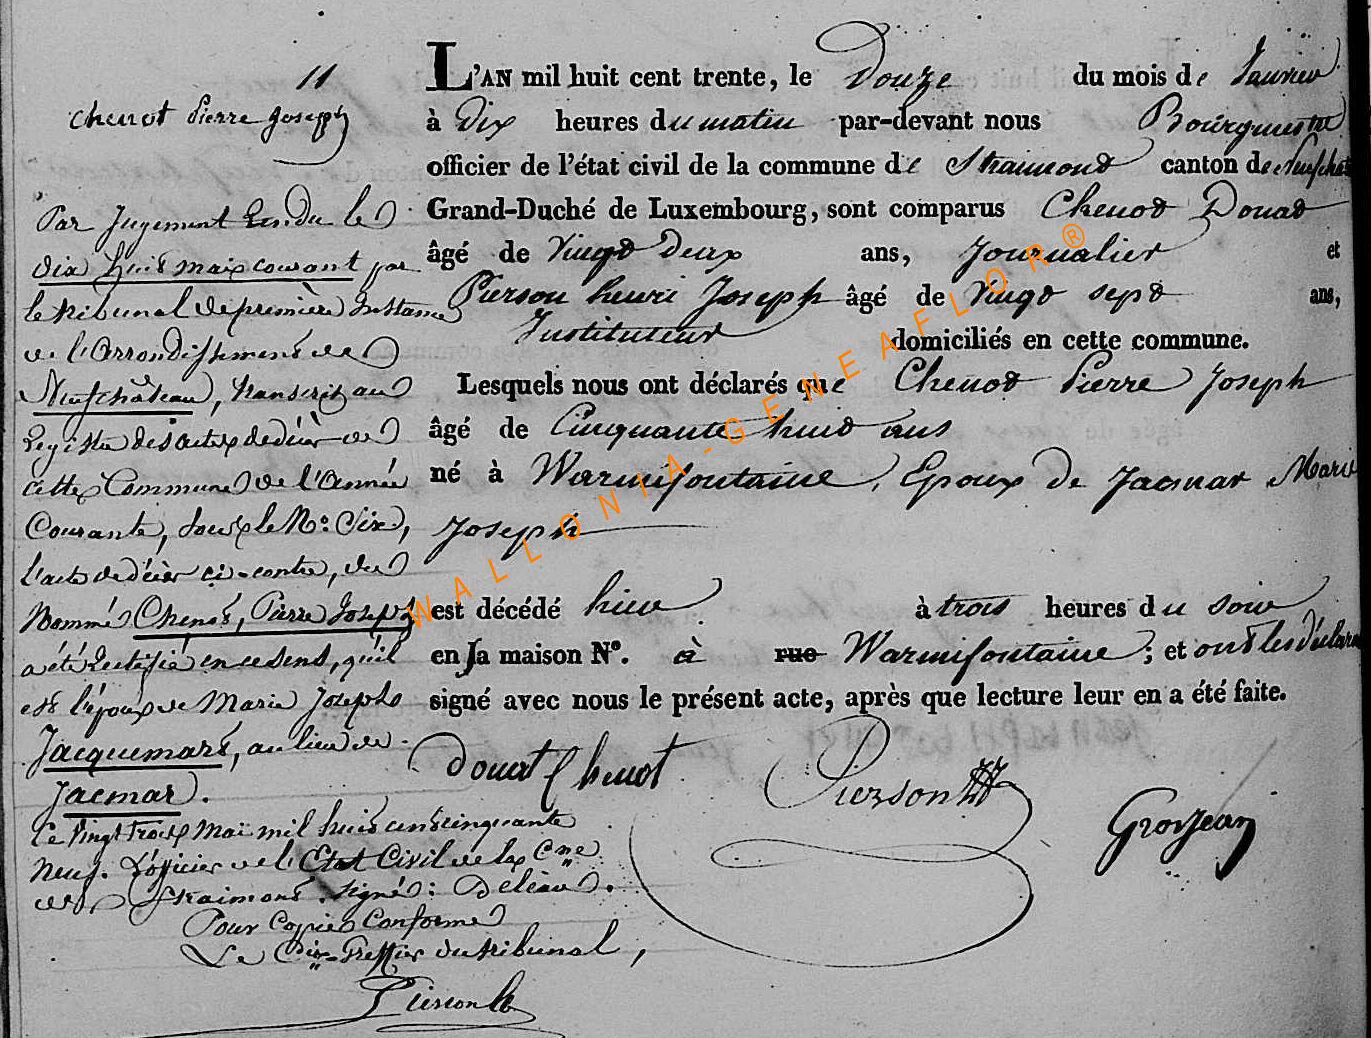 11
Chenot Pierre Joseph
Par Jugement Rendu le
dix huit mai courant par
le tribunal de première Instance
de l'Arrondissement de
Neufchâteau, transcrit au
Registre des actes de décès de
cette Commune de l'Année
Courante, sous le N.º Six,
l'acte de décès ci-contre, du
Nommé Chenot, Pierre Joseph
a été Rectifié en ce sens, qu'il
est l'époux de Marie Josephe
Jacquemart, au lieu de
Jacmar.
Ce Vingt trois Mai mil huit cent cinquante
Neuf. L'officier de l'Etat Civil de la Cne
de Straimont. signé:
Pour Copie Conforme
Le Cis-Greffier du tribunal,
Pierson
L'AN mil huit cent trente, le Douze du mois de Janvier
à Dix heures du matin par-devant nous Bourgmestre
officier de l'état civil de la commune de Straimont canton de Neufchat
Grand-Duché de Luxembourg, sont comparus Chenot Donat
âgé de Vingt Deux ans, Journalier et
Pierson henri Joseph âgé de Vingt sept ans,
Instituteur domiciliés en cette commune.
Lesquels nous ont déclarés que Chenot Pierre Joseph
âgé de Cinquante huit ans
né à Warmifontaine, Epoux de Jacmar Marie
Joseph
est décédé hier à trois heures du soir
en sa maison Nº. à rue Warmifontaine ; et ont les déclarans
signé avec nous le présent acte, après que lecture leur en a été faite.
Donat Chenot Pierson HJ Grosjean
WALLONIA-GENEAFLOR®